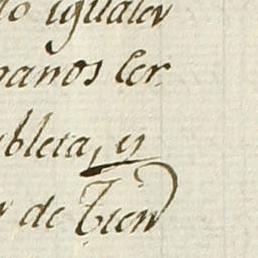 lo iguales
panos ler
bleta, y
r de Tien